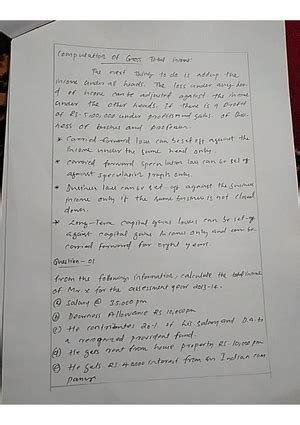 Computation of Gross Total Income:
The next thing to do is adding the
income under all heads. The loss under any hea-
d of income can be adjusted against the income
under the other heads. If there is a profit
of RS-5,00,000 under profits and gains of Bus-
iness of business and profession.
* Carried forward loss can be set off against the
income under the same head only.
* carried forward speculation loss can be set of
against speculation profit only.
* Business loss can be set-up against the business
income only if the same business is not closed
down.
* Long-term capital gains losses can be set-up
against capital gains income only and can be
carried forward for eight years.
Question-01
from the following information, calculate the total income
of Mr. x for the assessment year 2013-14.
(a) Salary @ 35,000 pm
(b) Dearness Allowance RS 10,000 pm
(c) He contributes 20% of his salary and D.A to
a recognised provident fund.
(d) He gets rent from house property RS-10,000 pm
(e) He gets RS-40000 interest from an Indian com
pany